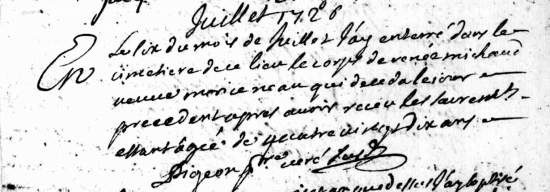 Juillet 1726
Le dix du mois de Juillet J'ay enterré dans le
cimetiere de ce lieu le corps de renée michaud
veuve moriceneau qui deceda le jour
precedent apres avoir receu les sacrements
estant agée de quatre vingt dix ans
Pigeon ptre curé
J'ay baptisé